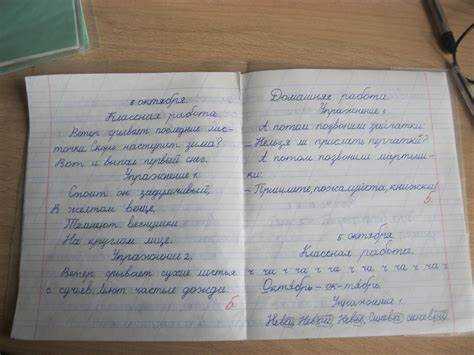 8 октября.
Классная работа.
Ветер срывает последние лис-
точки. Скоро наступит зима?
Вот и выпал первый снег.
Упражнение 1.
Стоит он задумчивый
В жёлтом венце
Темнеют веснушки
На круглом лице.
Упражнение 2.
Ветер срывает сухие листья
с сучьев. Льют частые дожди.
Домашняя работа.
Упражнение
А потом позвонили зайчатки:
- Нельзя ли прислать перчатки?
А потом позвонили мартыш-
ки:
- Пришлите, пожалуйста, книжки!
5.
5 октября.
Классная работа.
ч ча ч ча ч ча ч ча ч ча ч ча
Октябрь - ок-тябрь.
Упражнение 1
Нева, Невой, Невы,